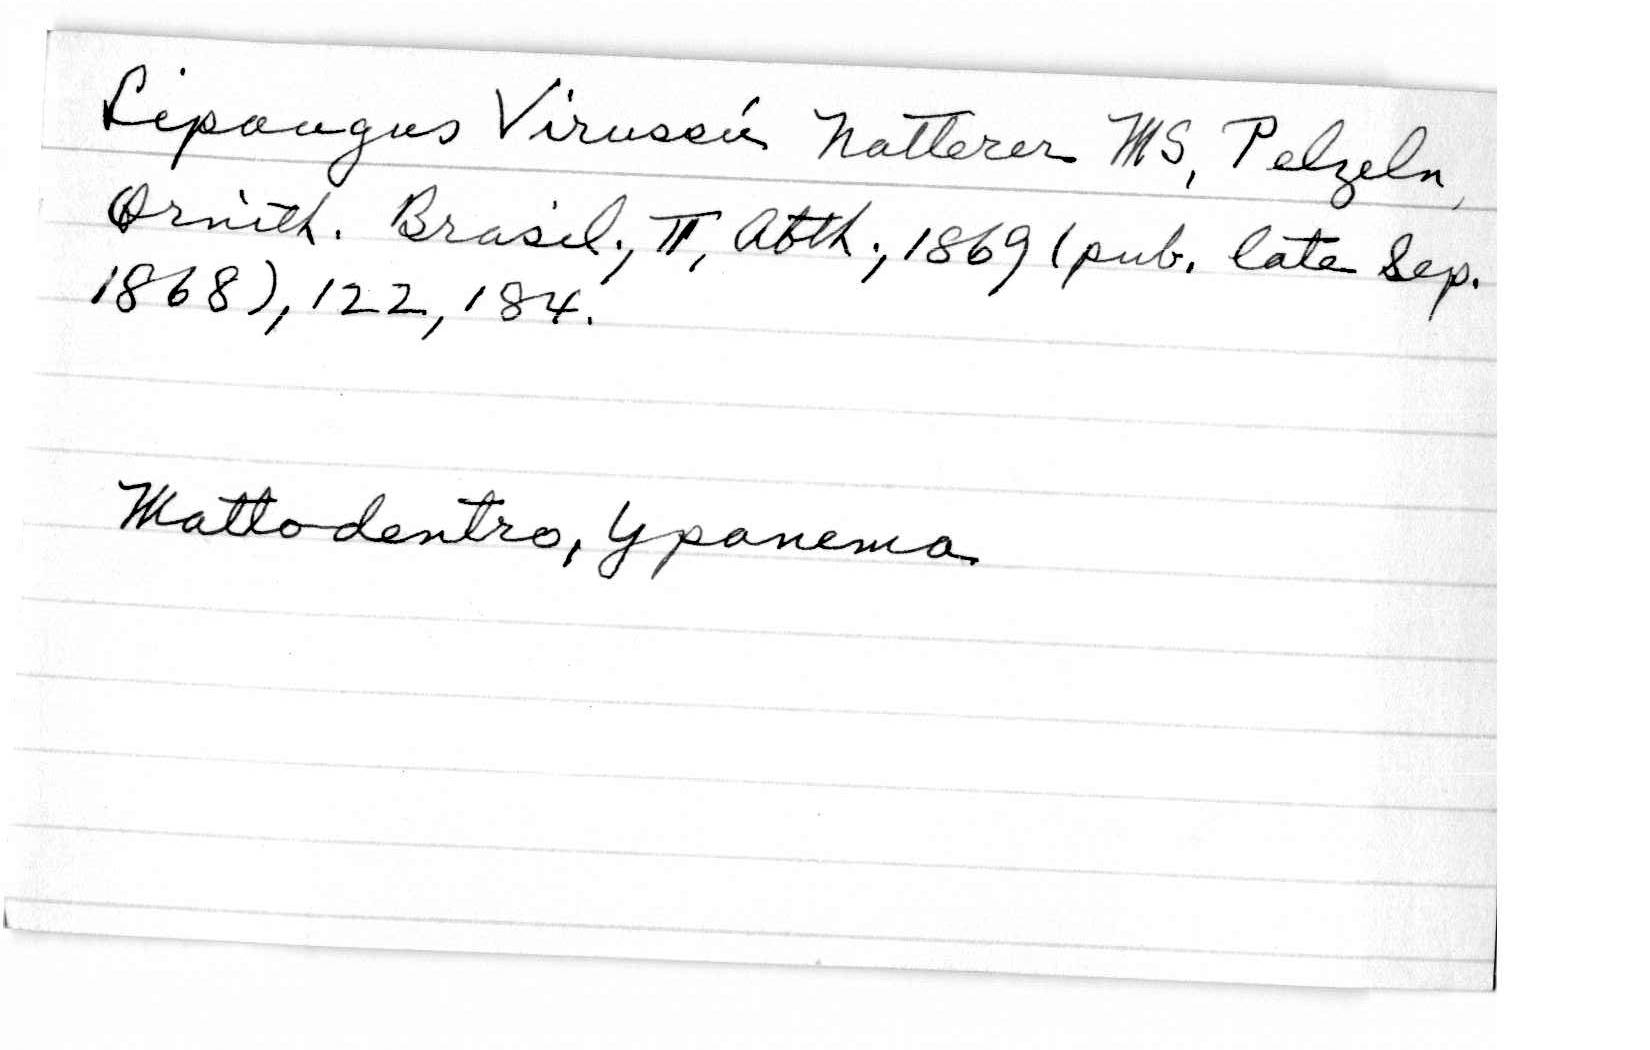 Lipaugus Virussú Natterer MS, Pelzeln,
Ornith. Brasil., II, Abth., 1869 (pub. late Sep.
1868), 122, 184.
Mattodentro, Ypanema